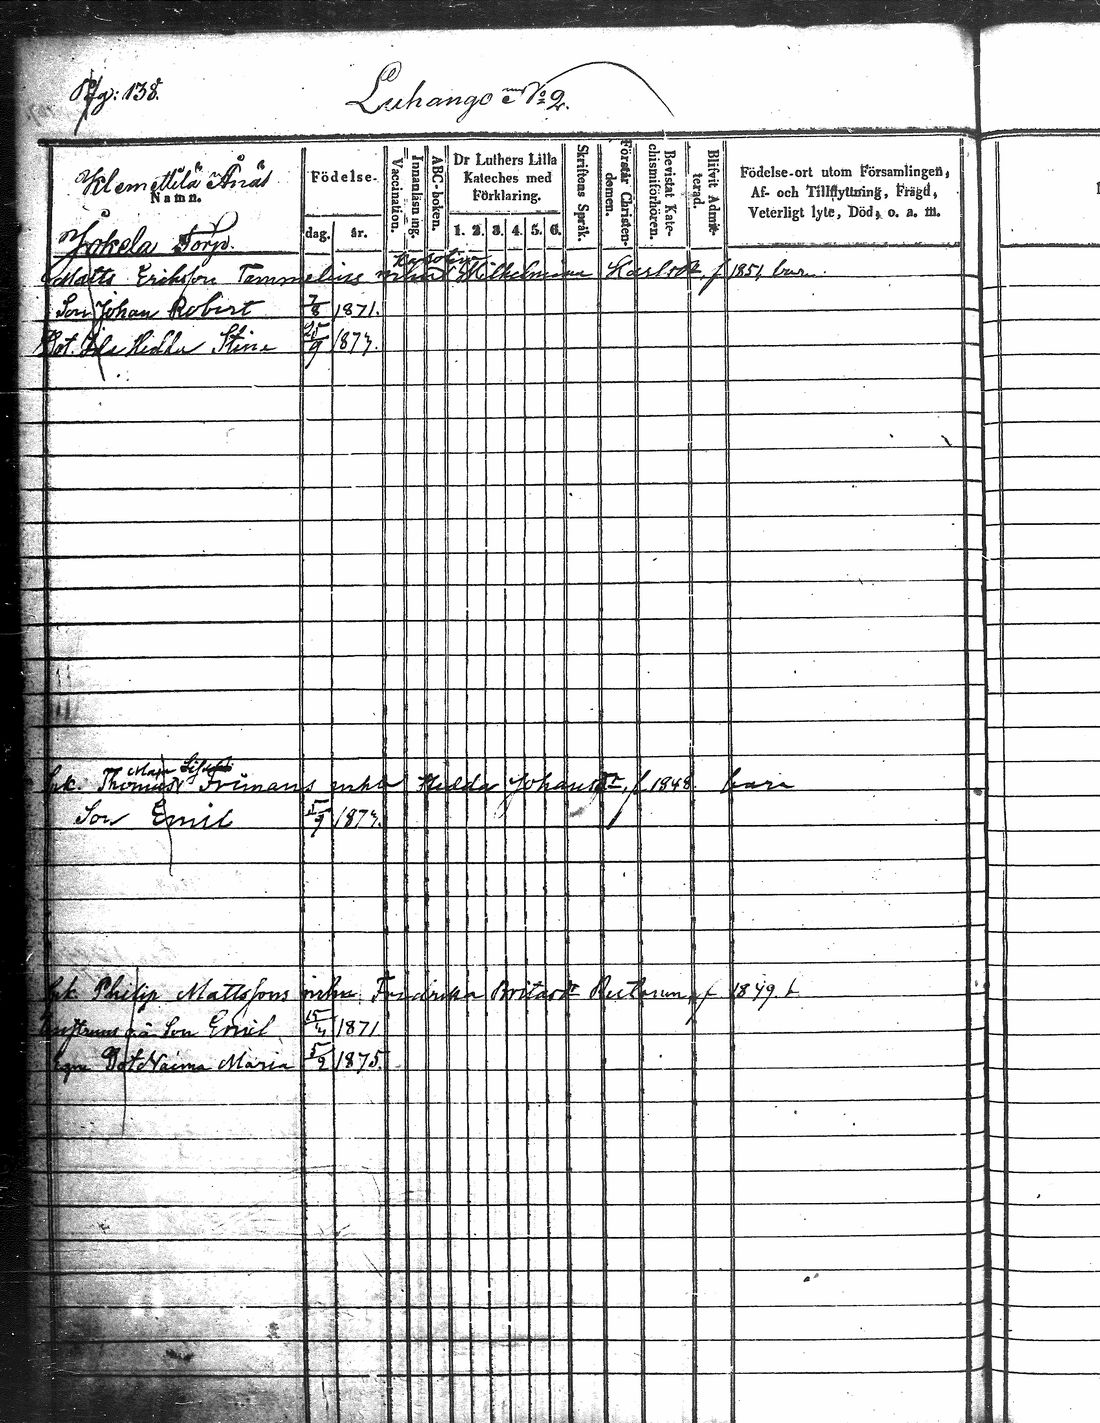 Pag: 138.
Luhango No 2.
Klemettilä Ånäs
Namn.
Jokela Torp.
Födelse-
dag. år.
Vaccination.
Innanläsning.
ABC-boken.
Dr Luthers Lilla
Kateches med
Förklaring.
1. 2. 3. 4. 5. 6.
Skriftens Språk.
Förstår Christen-
domen.
Bevistat Kate-
chismiförhören.
Blifvit Admit-
terad.
Födelse-ort utom Församlingen,
Af- och Tillflyttning, Frägd,
Veterligt lyte, Död, o. a. m.
Karolina
Matts Eriksson Tammelins mhu Wilhelmina Karlsdr f 1851
Son Johan Robert 7/8 1871.
Dot. Ida Hedda Stina 25/9 187
Maja
Thomas Frimans Hedda Johansdr f 1848
Son Emil 5/9 187
Philip Mattssons Fredrika f 1849.
Son Emil 15/4 1871
Dot Naima Maria 5/2 1875.